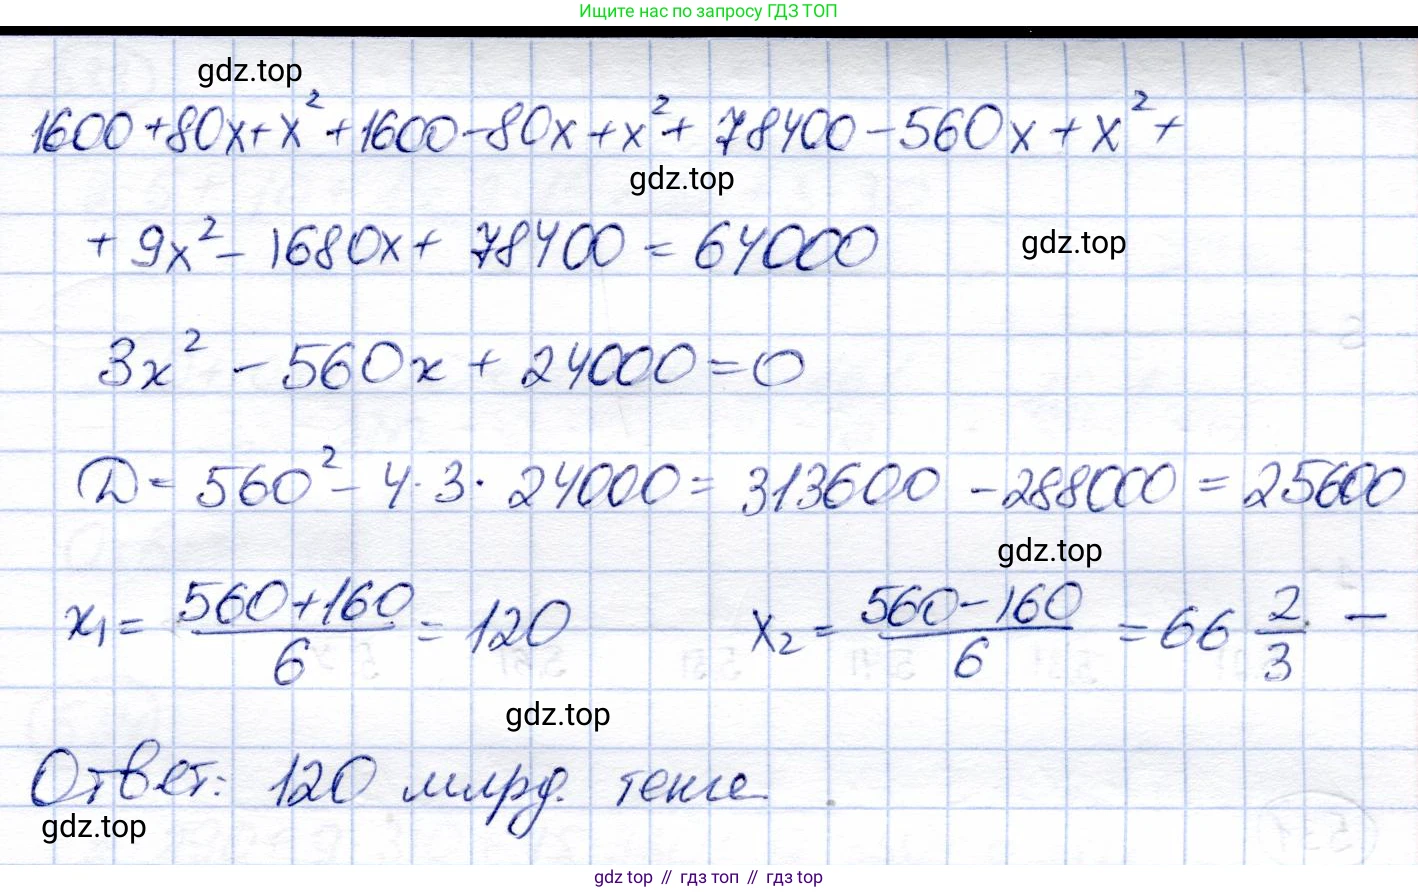 Ищите нас по запросу ГДЗ ТОП
gdz.top
1600+80x+x²+1600-80x+x²+ 78400-560x+x²+
gdz.top
+ 9x²- 1680x+ 78400 = 64000
gdz.top
3x² - 560x + 24000=0
D= 560²- 4·3· 24000= 313600 -288000 = 25600
gdz.top
x₁= (560+160)/6 = 120 x₂ = (560-160)/6 = 66 2/3 –
gdz.top
Ответ: 120 млрд. тенге.
gdz.top
gdz top // гдз топ // gdz top